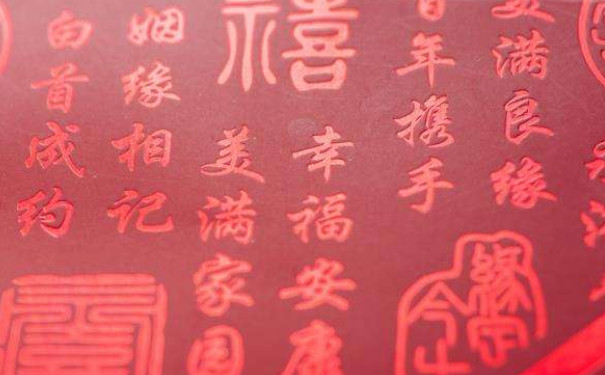 美满良缘
百年携手
禧
幸福安康
美满家园
姻缘相记
白首成约